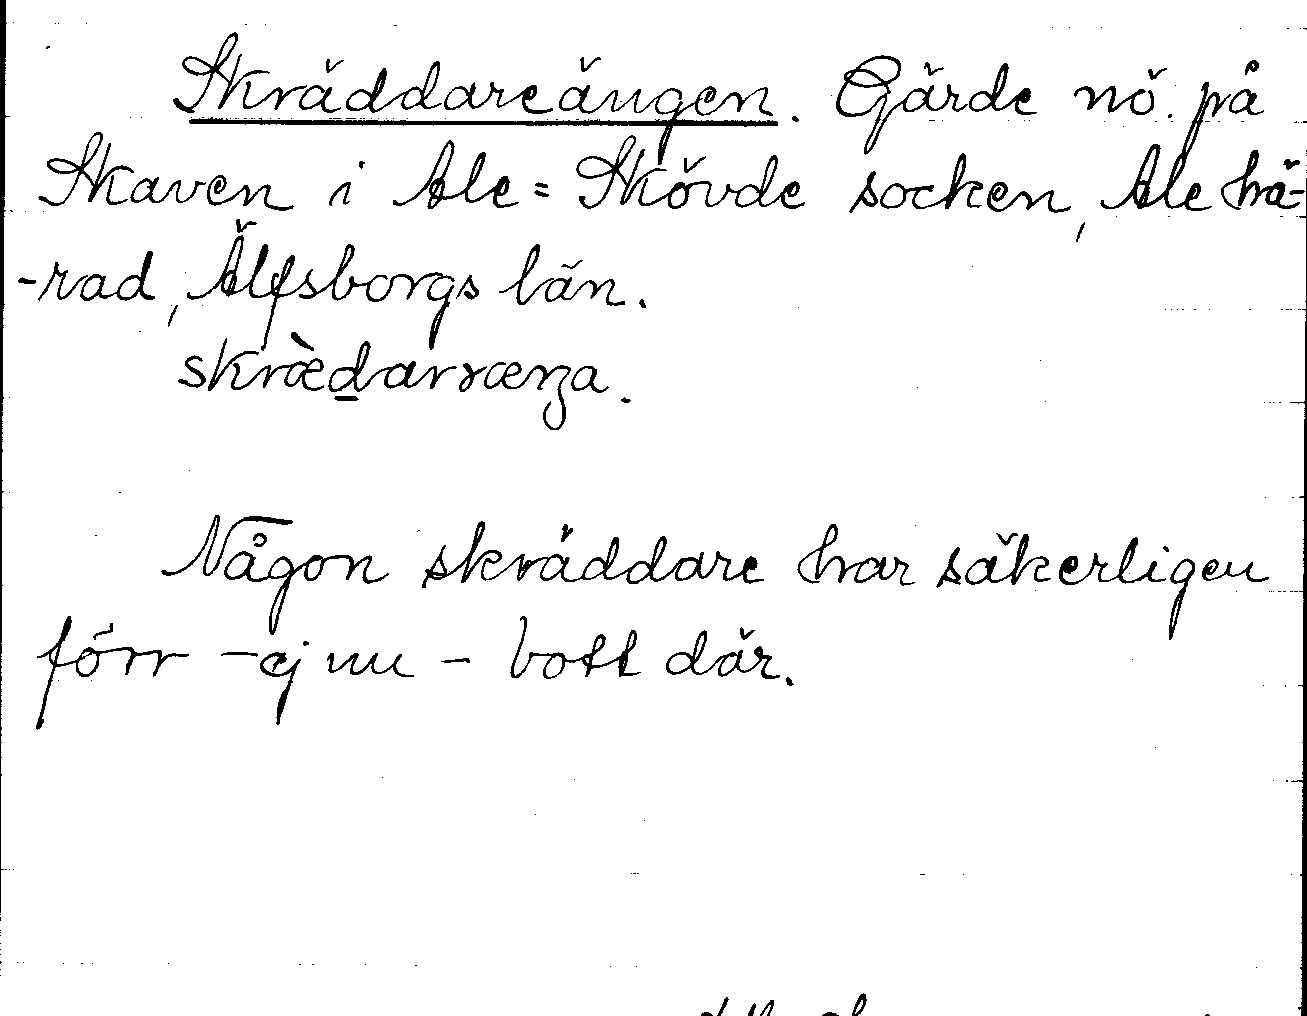 Skräddareängen. Gärde nö. på
Skaven i Ale=Skövde socken, Ale hä-
-rad, Älfsborgs län.
skræ̀darræŋa.
Någon skräddare har säkerligen
förr - ej nu - bott där.